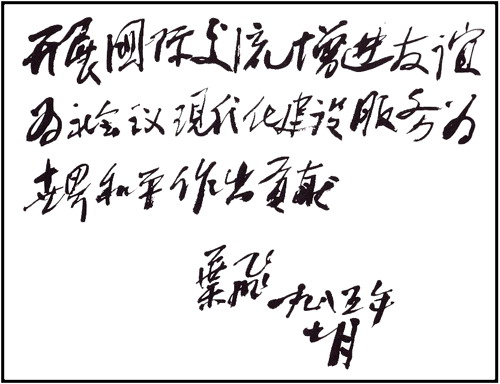 开展国际交流增进友谊
为社会主义现代化建设服务为
世界和平作出贡献
叶飞 一九八五年
七月